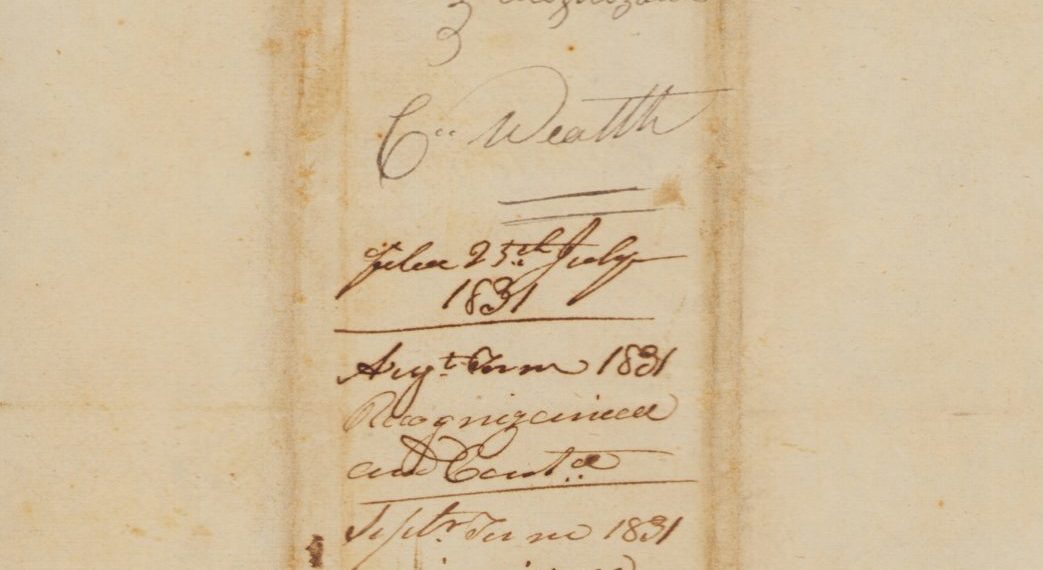 Co. Wealth
Filed 25th July
1831
Augt. Term 1831
Recognizance
and Contd.
Septr Term 1831